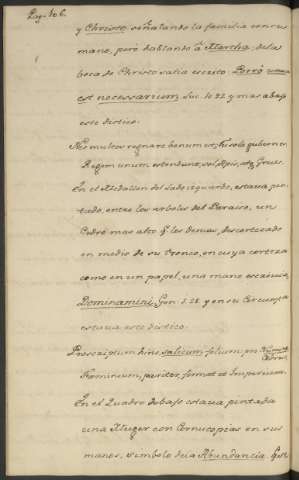 Pag. 106.
y Christo señalando la familia con su
mano, pero hablando à Martha: de la
boca de Christo salia escrito: Porrò unum
est necessarium Luc. 10. 42 y mas abajo
este distico.
Non multos regnare bonum est, sola gubernet
Regem unum ostendunt, sol, Apis, atq. Grues.
En el Medallon del lado izquierdo, estaua pin
tado, entre los arboles del Paraiso, un
Cedro mas alto q. los demas, descortezado
en medio de su tronco, en cuya corteza
como en un papel, una mano escriuia,
Dominamini, Gen. 1. 28 y en su Circunfa
estaua este distico.
Proscriptum hinc salicum filium, pro
Foemineum, pariter, format et Imperium.
En el Quadro debajo estaua pintada
una Muger con Cornucopias en sus
manos, simbolo de la Abundancia. Gest